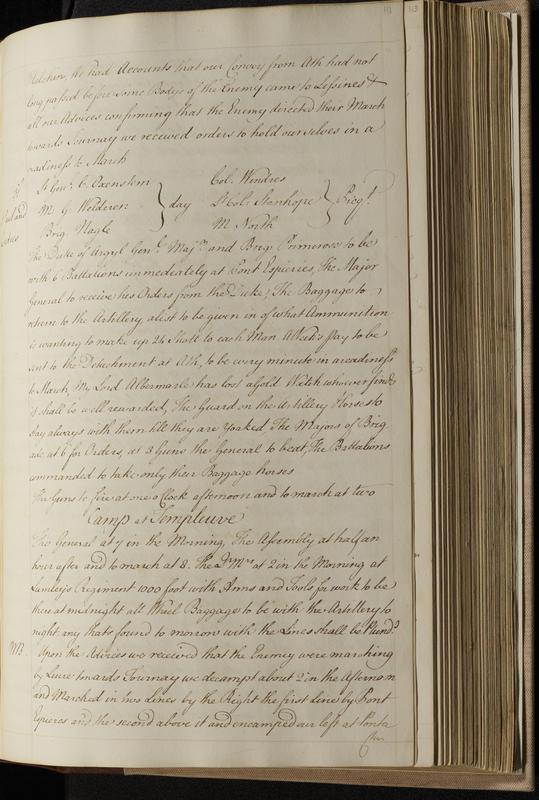 We had Accounts that our Convoy from Ath had not
long passed before some Bodys of the Enemy came to Lessines &
all our Advices confirming that the Enemy directed their March
towards Tournay we received orders to hold ourselves in a
readiness to March
Lt. Genl. C. Oxenstern
M. G. Welderen
Brig. Nagle
day
Col. Windres
Lt. Col. Stanhope
M. North
Picqt.
The Duke of Argyl Genl. Majr. and Brig. Primerose to be
with 6 Battalions immediately at Pont Espieries, The Major
General to receive his Orders from the Duke, The Baggage to
return to the Artillery a list to be given in of what Ammunition
is wanting to make up 24 Shott to each Man A Week's Pay to be
sent to the Detachment at Ath, to be every minute in a readiness
to March, My Lord Albemarle has lost a Gold Watch whoever finds
it shall be well rewarded, The Guard on the Artillery Horses to
stay always with them till they are Yoaked The Majors of Brig
ade at 6 for Orders, at 3 Guns the General to beat, The Battalions
commanded to take only their Baggage horses
The Guns to fire at one o Clock afternoon and to march at two
Camp at Templeuve
The General at 7 in the Morning, The Assembly at half an
hour after and to march at 8. The Qr. Mrs. at 2 in the Morning at
Lumley's Regiment 1000 foot with Arms and Tools for work to be
there at midnight all Wheel Baggage to be with the Artillery to
night any thats found to morrow with the Lines shall be Plundd.
NB. Upon the Advices we received that the Enemy were marching
by Leuze towards Tournay we decampt about 2 in the Afternoon
and Marched in two Lines by the Right the first Line by Pont
Espieres and the second above it and encamped our left at Ponta